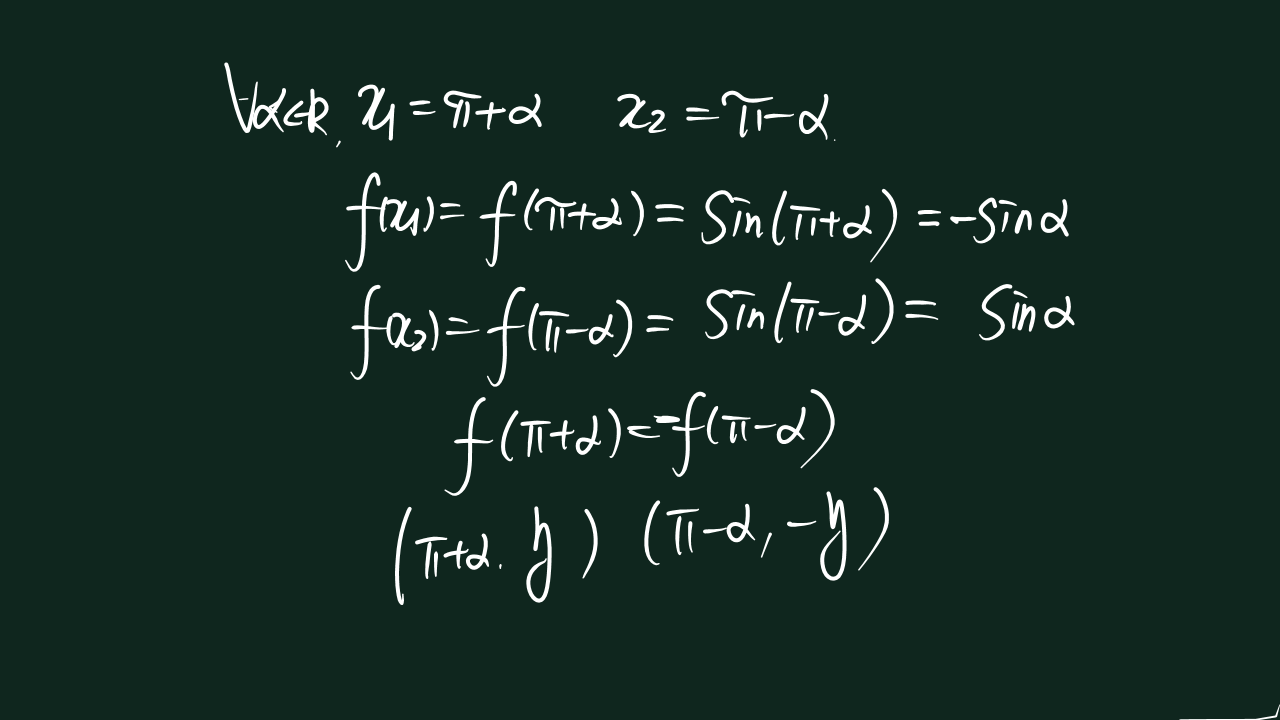 ∀α∈R, x₁=π+α x₂=π-α.
f(x₁)=f(π+α)=Sin(π+α)=-Sinα
f(x₂)=f(π-α)=Sin(π-α)=Sinα
f(π+α)=-f(π-α)
(π+α, y) (π-α, -y)